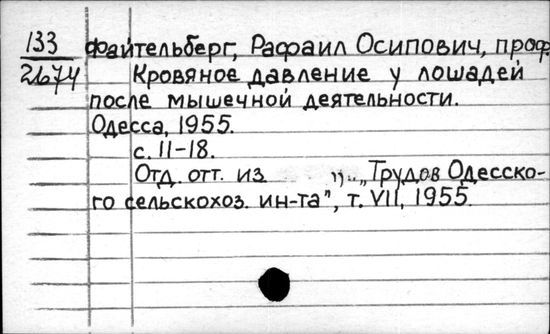 133 Файтельберг, Рафаил Осипович, проф.
21674 Кровяное давление у лошадей
после мышечной деятельности.
Одесса, 1955.
с. 11-18.
Отд. отт. из „Трудов Одесско-
го сельскохоз. ин-та", т. VII, 1955.